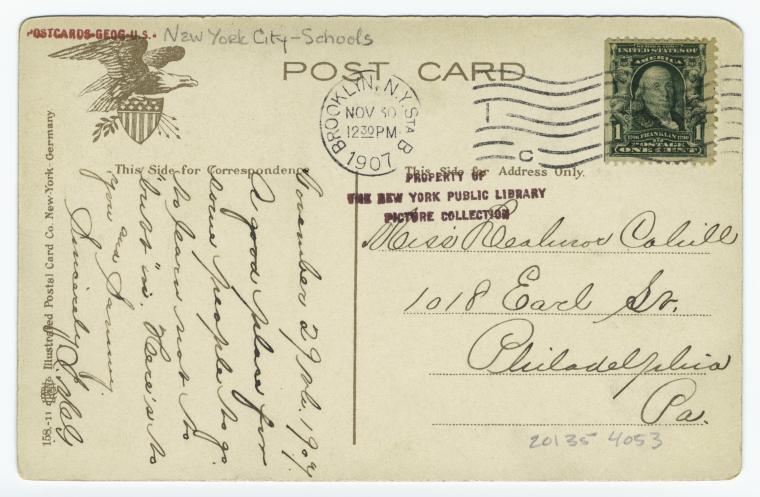 POSTCARDS-GEOG-U.S.
New York City-Schools
POST CARD
BROOKLYN, N.Y. Sta B
NOV 30
12:30 PM
1907
C
UNITED STATES OF
AMERICA
1 FRANKLIN 1
POSTAGE
ONE CENT
This Side for Correspondence
This Side for Address Only.
PROPERTY OF
THE NEW YORK PUBLIC LIBRARY
PICTURE COLLECTION
November 29th. 1907.
A good place for
some people to go.
to learn not to
butt "in. Here's to
you and Sammy.
Sincerely
Miss Cahill
1018 Earl St.
Philadelphia
Pa.
20135 4053
158.-11 Illustrated Postal Card Co. New-York - Germany